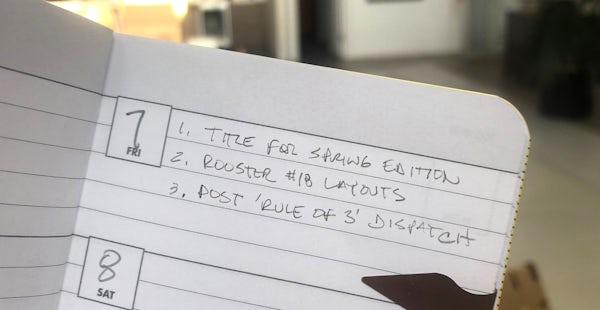 7
FRI
1. TITLE FOR SPRING EDITION
2. ROOSTER #18 LAYOUTS
3. POST 'RULE OF 3' DISPATCH
8
SAT